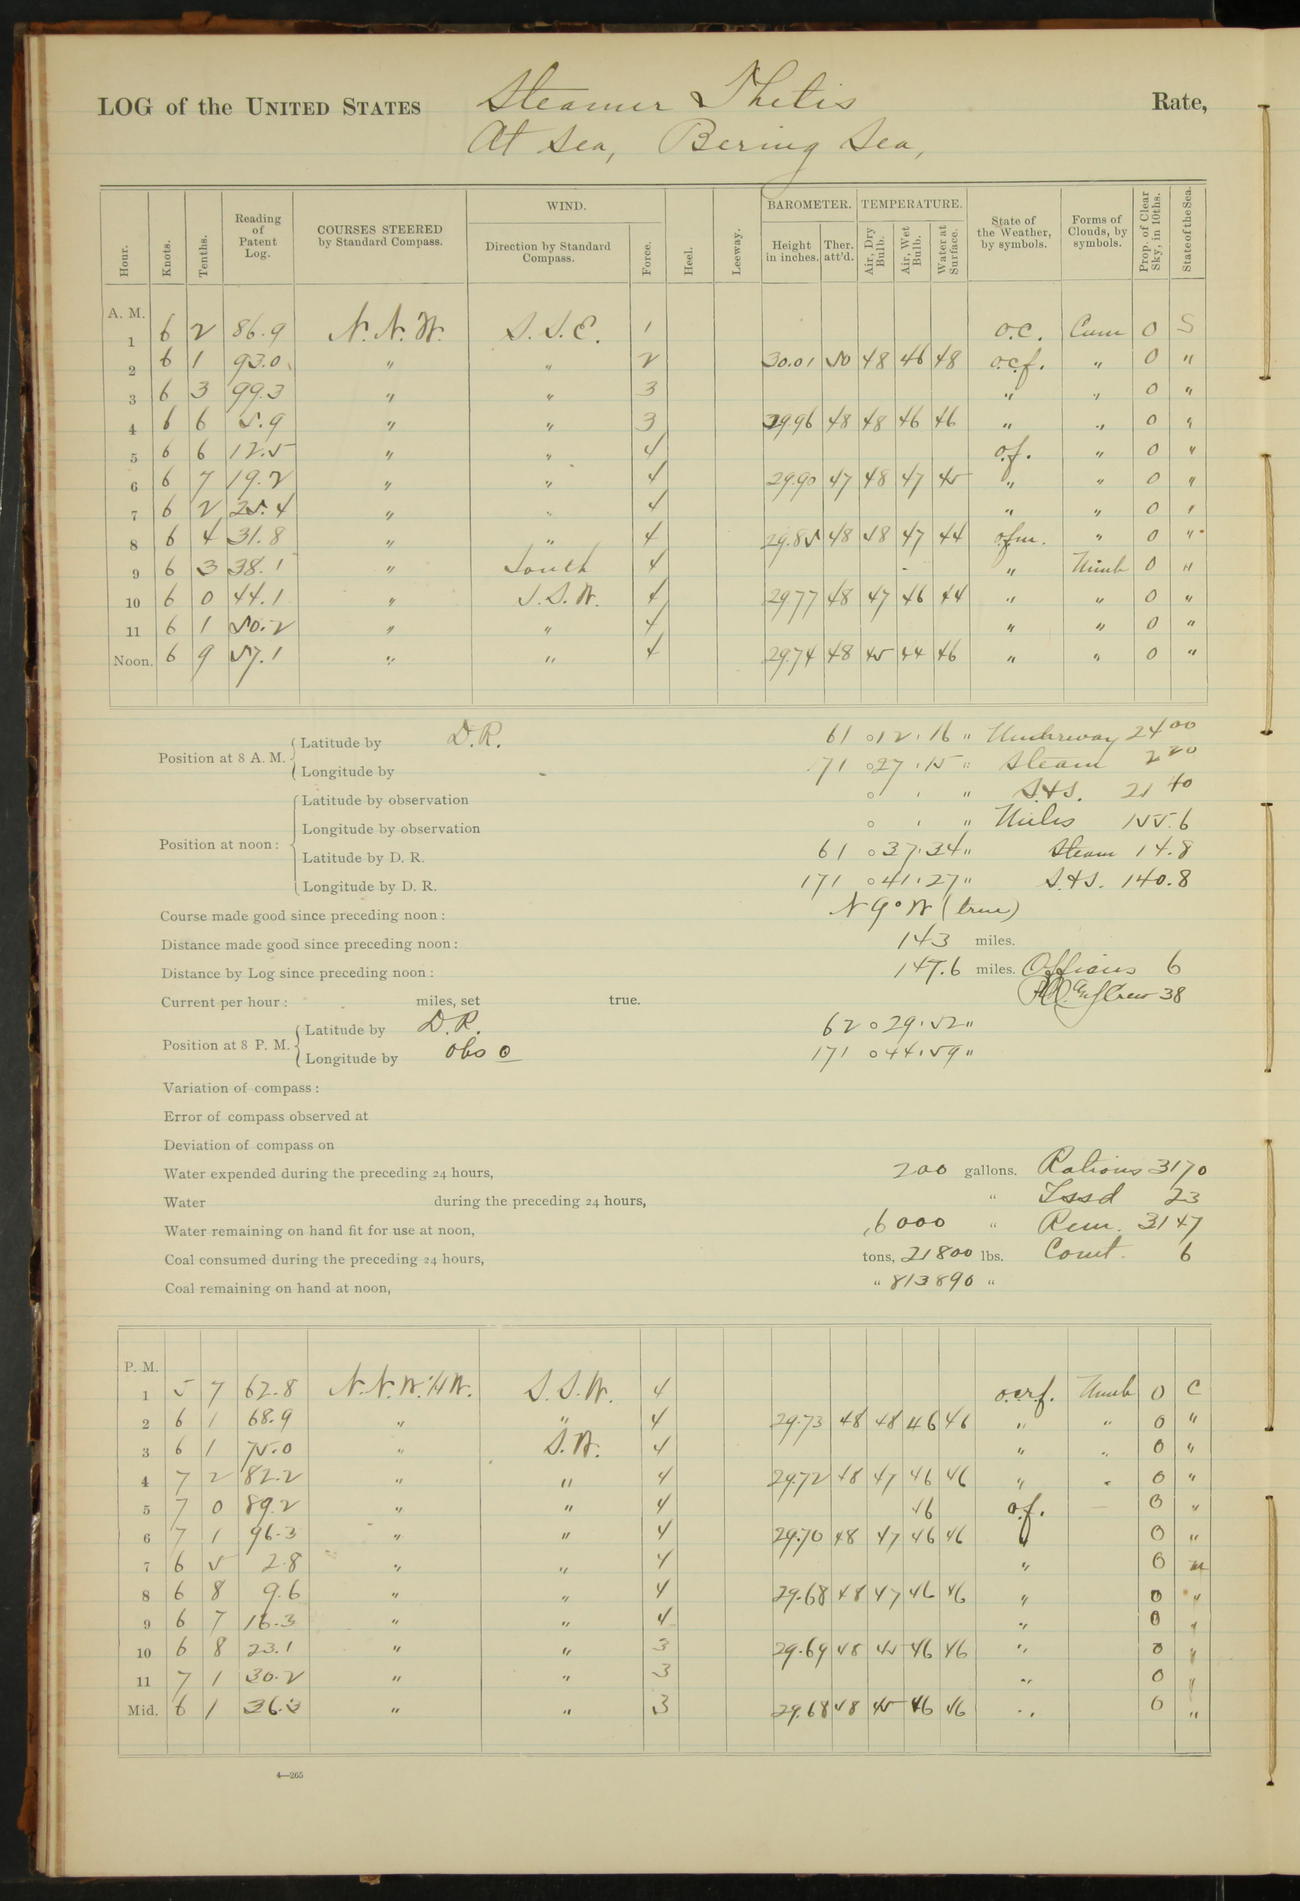 LOG of the UNITED STATES Steamer Thetis Rate,
At Sea, Bering Sea,
Hour. Knots. Tenths. Reading of Patent Log. COURSES STEERED by Standard Compass. WIND. Direction by Standard Compass. Force. Heel. Leeway. BAROMETER. Height in inches. Ther. att'd. TEMPERATURE. Air, Dry Bulb. Air, Wet Bulb. Water at Surface. State of the Weather, by symbols. Forms of Clouds, by symbols. Prop. of Clear Sky, in 10ths. State of the Sea.
A. M.
1 6 2 86.9 N.N.W. S.S.E. 1 o.c. Cum 0 S
2 6 1 93.0 " " 2 30.01 50 48 46 48 o.c.f. " 0 "
3 6 3 99.3 " " 3 " " 0 "
4 6 6 5.9 " " 3 29.96 48 48 46 46 " " 0 "
5 6 6 12.5 " " 4 o.f. " 0 "
6 6 7 19.2 " " 4 29.90 47 48 47 45 " " 0 "
7 6 2 25.4 " " 4 " " 0 "
8 6 4 31.8 " " 4 29.85 48 48 47 44 o.f.m. " 0 "
9 6 3 38.1 " South 4 " Nimb 0 "
10 6 0 44.1 " S.S.W. 4 29.77 48 47 46 44 " " 0 "
11 6 1 50.2 " " 4 " " 0 "
Noon. 6 9 57.1 " " 4 29.74 48 45 44 46 " " 0 "
Position at 8 A. M. Latitude by D.R. 61 ° 12 ' 16 " Underway 24 00
Longitude by 171 ° 27 ' 15 " Steam 2 20
Position at noon: Latitude by observation ° ' " S.&S. 21 40
Longitude by observation ° ' " Miles 155.6
Latitude by D. R. 61 ° 37 ' 34 " Steam 14.8
Longitude by D. R. 171 ° 41 ' 27 " S.&S. 140.8
Course made good since preceding noon: N 9° W (true)
Distance made good since preceding noon: 143 miles.
Distance by Log since preceding noon: 147.6 miles. Officers 6
Current per hour: miles, set true. Crew 38
Position at 8 P. M. Latitude by D.R. 62 ° 29 ' 52 "
Longitude by obs 171 ° 44 ' 59 "
Variation of compass:
Error of compass observed at
Deviation of compass on
Water expended during the preceding 24 hours, 200 gallons. Rations 3170
Water during the preceding 24 hours, " Issd 23
Water remaining on hand fit for use at noon, 6000 " Rem. 3147
Coal consumed during the preceding 24 hours, tons, 21800 lbs. Comt. 6
Coal remaining on hand at noon, " 813890 "
P. M.
1 5 7 62.8 N.N.W.½W. S.S.W. 4 o.c.r.f. Nimb 0 C
2 6 1 68.9 " " 4 29.73 48 48 46 46 " " 0 "
3 6 1 75.0 " S.W. 4 " " 0 "
4 7 2 82.2 " " 4 29.72 48 47 46 46 " " 0 "
5 7 0 89.2 " " 4 46 o.f. 0 "
6 7 1 96.3 " " 4 29.70 48 47 46 46 " 0 "
7 6 5 2.8 " " 4 " 0 m
8 6 8 9.6 " " 4 29.68 48 47 46 46 " 0 "
9 6 7 16.3 " " 4 " 0 "
10 6 8 23.1 " " 3 29.69 48 45 46 46 " 0 "
11 7 1 30.2 " " 3 " 0 "
Mid. 6 1 36.3 " " 3 29.68 48 45 46 46 " 0 "
4—265